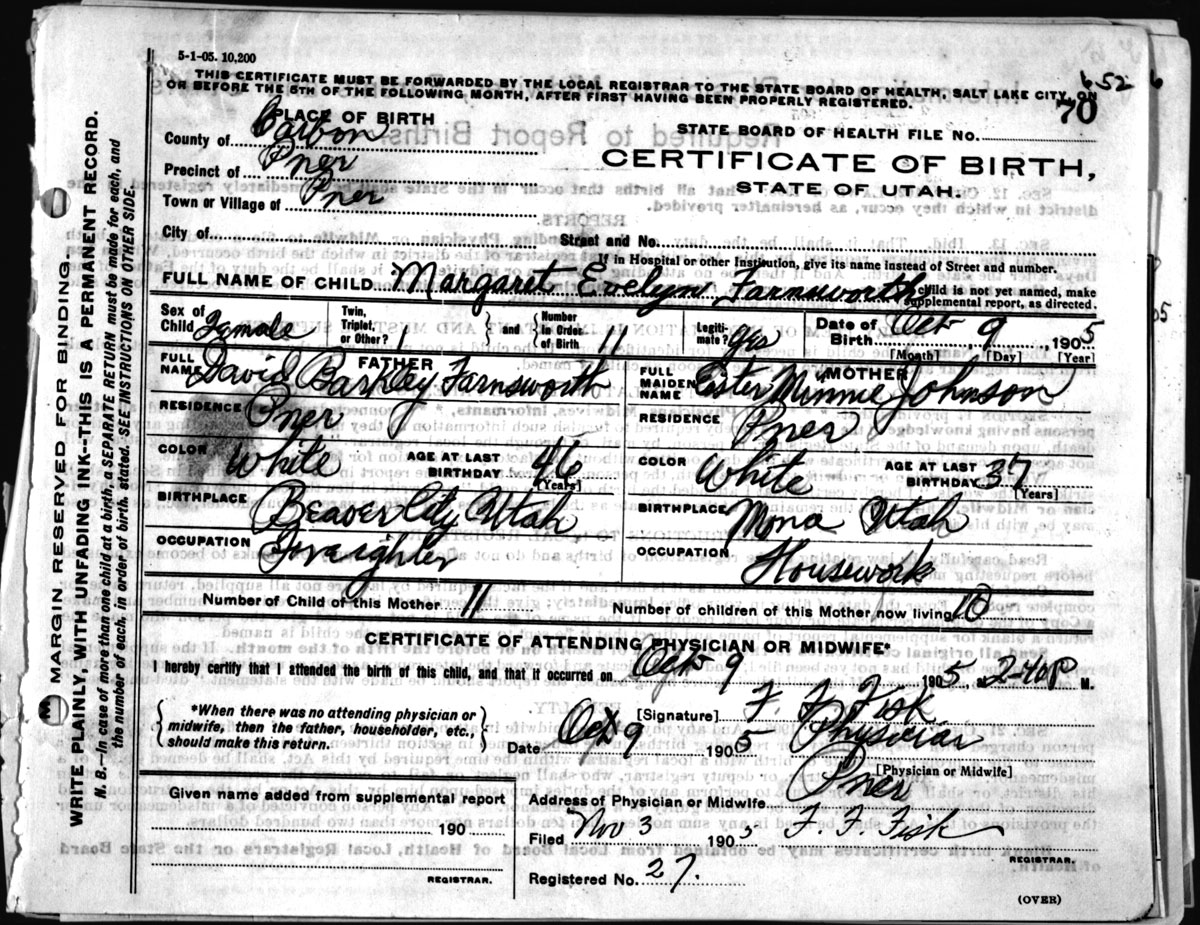 5-1-05. 10,200
THIS CERTIFICATE MUST BE FORWARDED BY THE LOCAL REGISTRAR TO THE STATE BOARD OF HEALTH, SALT LAKE CITY, ON
OR BEFORE THE 5TH OF THE FOLLOWING MONTH, AFTER FIRST HAVING BEEN PROPERLY REGISTERED.
652
70
PLACE OF BIRTH
STATE BOARD OF HEALTH FILE NO.
County of Carbon
CERTIFICATE OF BIRTH,
Precinct of
STATE OF UTAH.
Town or Village of
City of Street and No.
If in Hospital or other Institution, give its name instead of Street and number.
FULL NAME OF CHILD Margaret Evelyn Farnsworth
child is not yet named, make
supplemental report, as directed.
Sex of Child Female Twin, Triplet, or Other? and Number in Order of Birth 11 Legiti-mate? yes Date of Birth Oct 9, 1905
[Month] [Day] [Year]
FATHER
FULL NAME David Barkley Farnsworth
RESIDENCE
COLOR White AGE AT LAST BIRTHDAY 46
[Years]
BIRTHPLACE Beaver City Utah
OCCUPATION Freighter
MOTHER
FULL MAIDEN NAME Ester Minnie Johnson
RESIDENCE
COLOR White AGE AT LAST BIRTHDAY 37
[Years]
BIRTHPLACE Mona Utah
OCCUPATION Housework
Number of Child of this Mother 11 Number of children of this Mother now living 10
CERTIFICATE OF ATTENDING PHYSICIAN OR MIDWIFE*
I hereby certify that I attended the birth of this child, and that it occurred on Oct 9 1905, 2-40 P M.
*When there was no attending physician or
midwife, then the father, householder, etc.,
should make this return.
[Signature] F. F. Fisk
Date Oct 9 1905 Physician
[Physician or Midwife]
Given name added from supplemental report
190
REGISTRAR.
Address of Physician or Midwife
Filed Nov 3 1905 F. F. Fisk
REGISTRAR.
Registered No. 27.
(OVER)
MARGIN RESERVED FOR BINDING.
WRITE PLAINLY, WITH UNFADING INK--THIS IS A PERMANENT RECORD.
N. B.—In case of more than one child at a birth, a SEPARATE RETURN must be made for each, and
the number of each, in order of birth, stated. SEE INSTRUCTIONS ON OTHER SIDE.